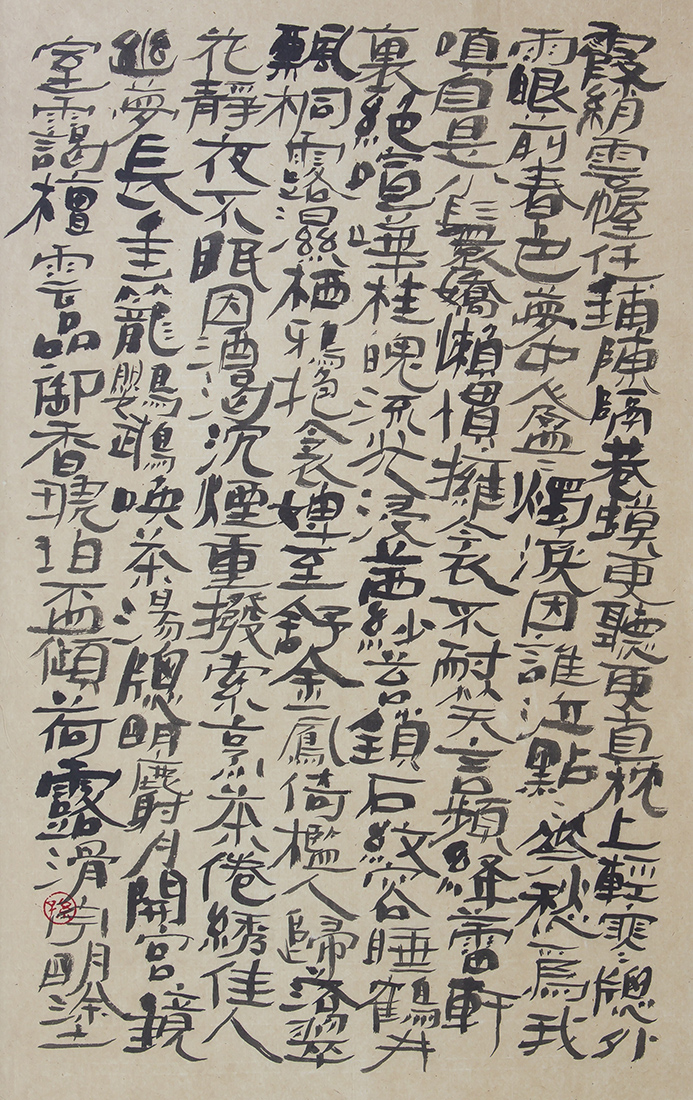 霞綃雲幄任鋪陳隔巷蟆更聽更真枕上輕寒牕外
雨眼前春色夢中人盈々燭淚因誰泣點々花愁為我
嗔自是小鬟嬌懶慣擁衾不耐笑言頻絳蕓軒
裏絕喧嘩桂魄流光浸茜紗苔鎖石紋容睡鶴井
飄桐露濕栖鴉抱衾婢至舒金鳳倚檻人歸落翠
花靜夜不眠因酒渴沉煙重撥索烹茶倦繡佳人
幽夢長金籠鸚鵡喚茶湯牕明麝月開宮鏡
室靄檀雲品御香琥珀盃傾荷露滑明塗